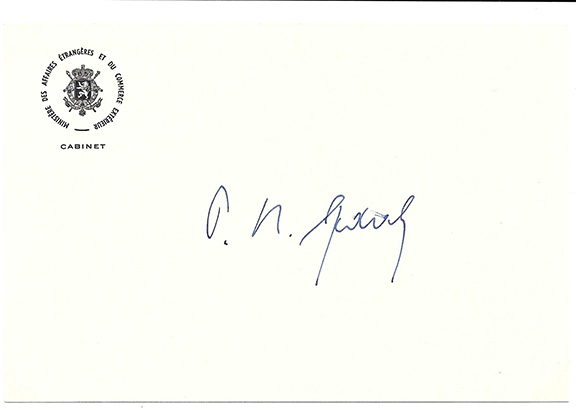 MINISTÈRE DES AFFAIRES ÉTRANGÈRES ET DU COMMERCE EXTÉRIEUR
CABINET
P. H. Spaak